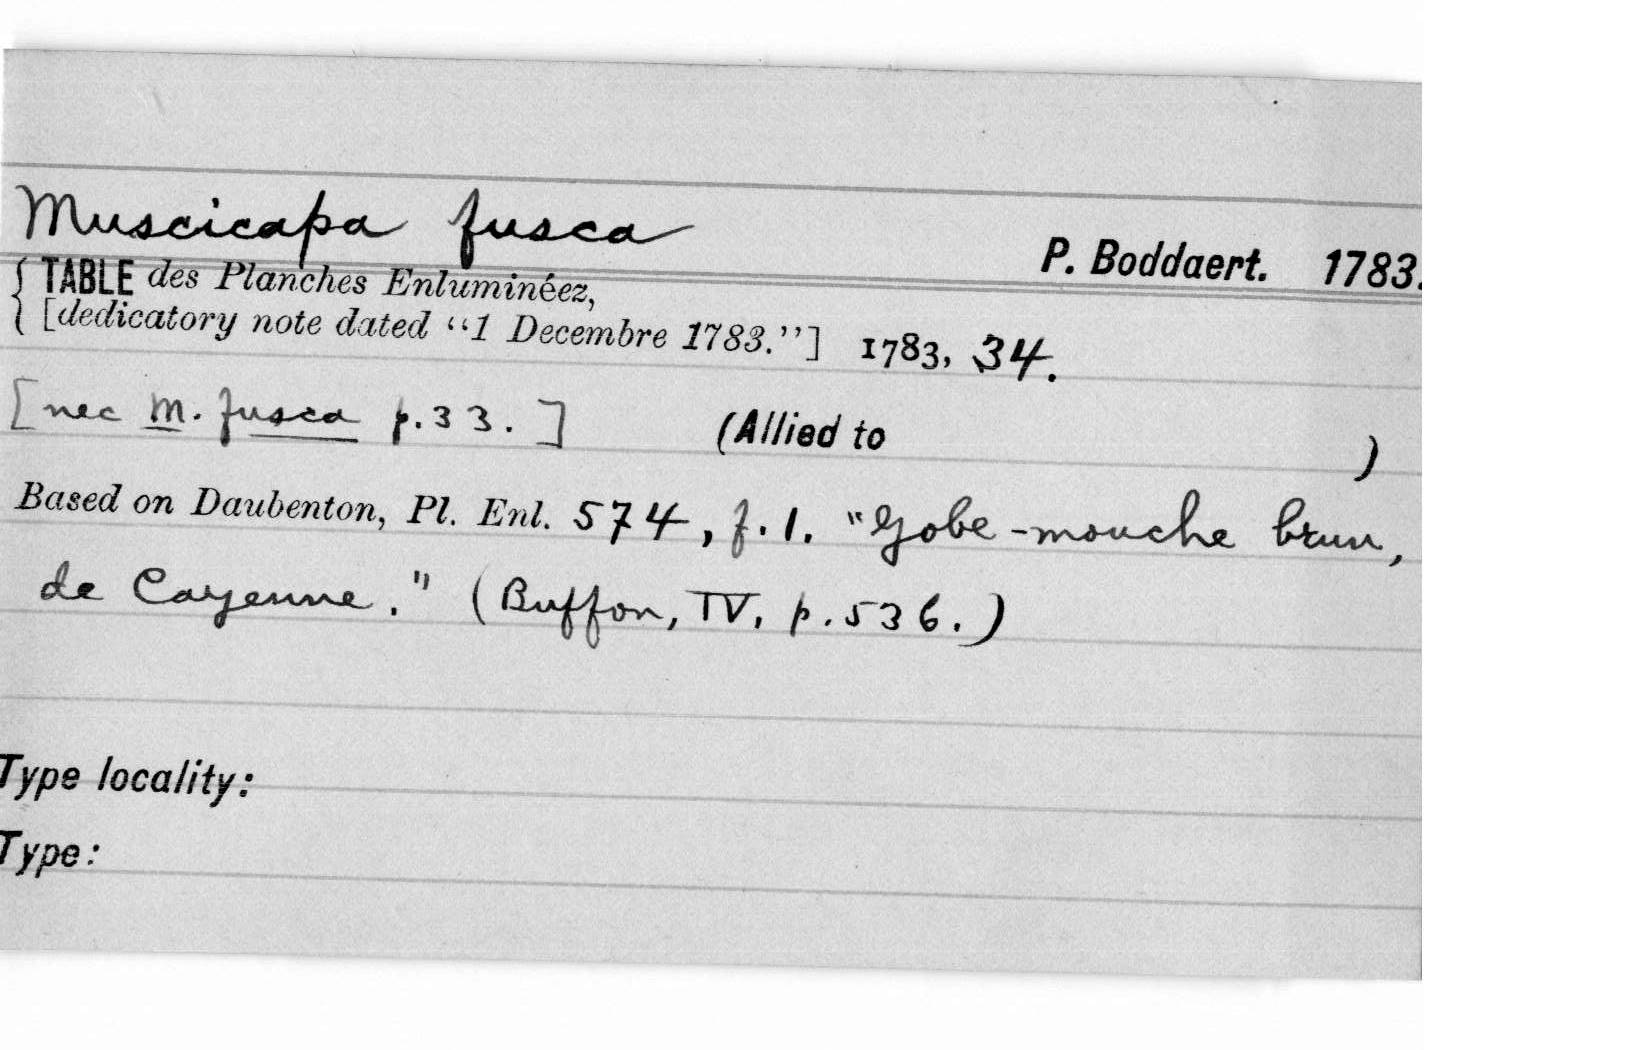 Muscicapa fusca
P. Boddaert. 1783.
{ TABLE des Planches Enluminéez,
[dedicatory note dated “1 Decembre 1783.”] 1783, 34.
[nec M. fusca p. 33.] (Allied to )
Based on Daubenton, Pl. Enl. 574, f. 1. "Gobe-mouche brun,
de Cayenne." (Buffon, IV, p. 536.)
Type locality:
Type: